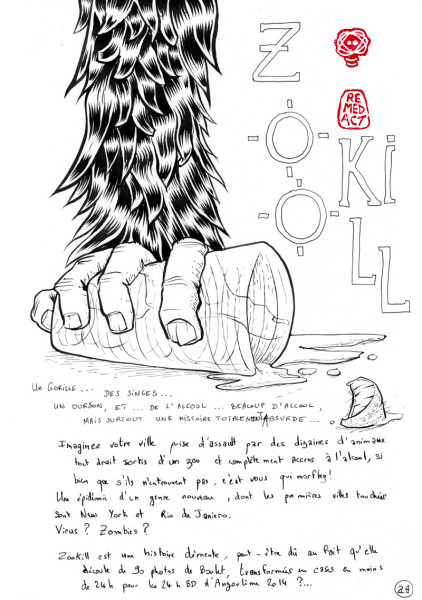 ZOO
KILL
RE
MED
ACT
UN GORILLE... DES SINGES...
UN OURSON, ET ... DE L'ALCOOL ... BEAUCOUP D'ALCOOL,
MAIS SURTOUT UNE HISTOIRE TOTALEMENT ABSURDE...
Imaginez votre ville prise d'assaut par des dizaines d'animaux
tout droit sortis d'un zoo et complètement accros à l'alcool, si
bien que s'ils n'en trouvent pas, c'est vous qui morflez!
Une épidémie d'un genre nouveau, dont les premières villes touchées
sont New York et Rio de Janiero.
Virus? Zombies?
Zookill est une histoire démente, peut-être dû au fait qu'elle
découle de 90 photos de Boulet, transformés en cases en moins
de 24h pour les 24h BD d'Angoulême 2014?...
28